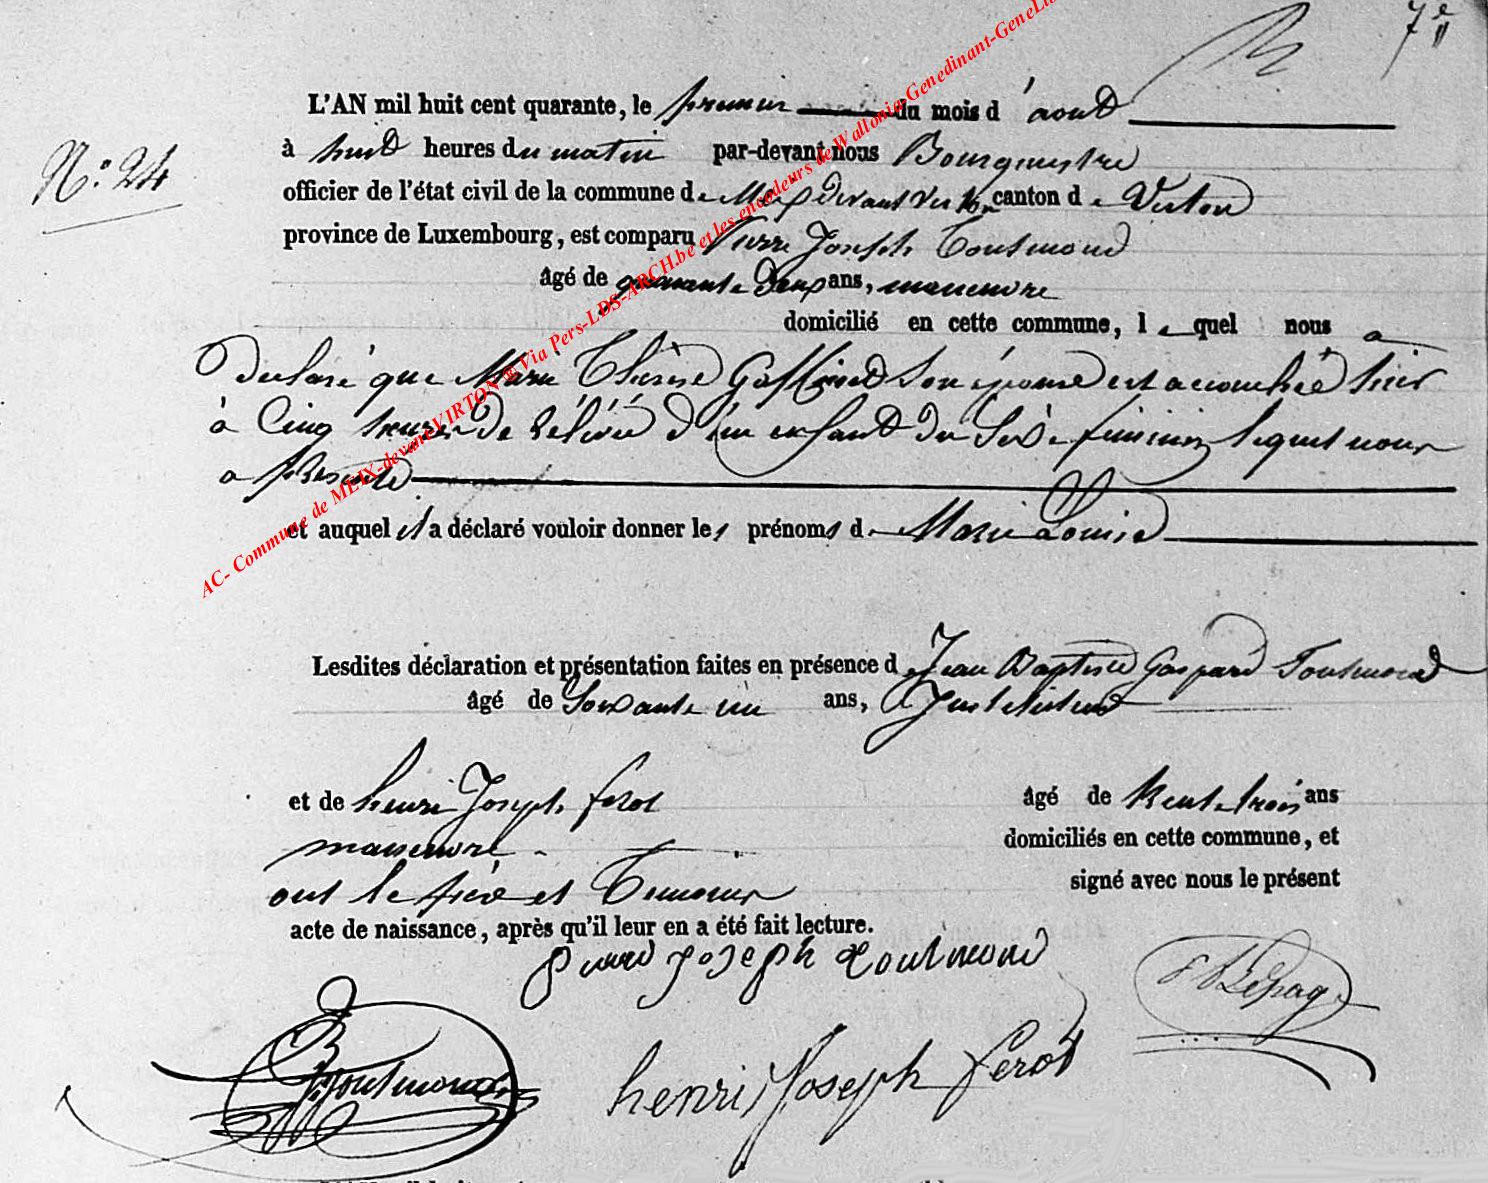 7e
N.° 24
L'AN mil huit cent quarante, le premier du mois d'aout
à huit heures du matin par-devant nous Bourgmestre
officier de l'état civil de la commune de Meix devant Virton canton de Virton
province de Luxembourg, est comparu Pierre Joseph Toutmond
âgé de quarante deux ans, manœuvre
domicilié en cette commune, lequel nous a
declaré que Marie Thérèse son épouse est accouchée hier
à Cinq heures de rélévée d'un enfant du Sexe féminin lequel nous
a présenté
et auquel il a déclaré vouloir donner les prénoms de Marie Louise
Lesdites déclaration et présentation faites en présence de Jean Baptiste Gaspard Toutmond
âgé de Soixante un ans, Instituteur
et de henri Joseph ferot âgé de trente trois ans
manœuvre domiciliés en cette commune, et
ont le père et Temoins signé avec nous le présent
acte de naissance, après qu'il leur en a été fait lecture.
pierre joseph toutmond
Lepage
Toutmond
henri Joseph ferot
AC- Commune de MEIX-devant VIRTON @ Via Pers-LDS-ARCH.be et les encodeurs de Wallonia-Genedinant-GeneLux